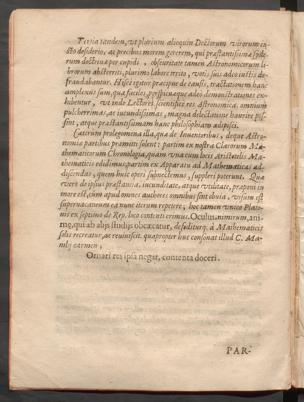 Tertia tandem, vt plurium alioquin Doctorum virorum iusto desiderio, ac precibus morem gererem, qui præstantissimæ syderum
doctrinæ per cupidi, obscuritate tamen Astronomicorum librorum
absterriti, plurimo labore irrito, votis suis adeo iustis defraudabantur.
His igitur præcipue de causis, tractationem hanc
amplexus sum, qua faciles, perspicuæque adeo demonstrationes exhibentur,
vt inde Lectores scientificè res astronomicas omnium
pulcherrimas, ac iucundissimas, magna delectatione haurire possint,
atque præstantissimam hanc philosophiam adipisci.
Cæterum prolegomena illa, quæ de Inuentoribus, deque Astronomiæ
partibus præmitti solent; partim ex nostra Clarorum Mathematicorum
Chronologia, quam vna cum locis Aristotelis Mathematicis
edidimus, partim ex Apparatu ad Mathematicas addiscendas,
quem huic operi subnectemus, suppleri poterunt. Quæ
verò de ipsius præstantia, iucunditate, atque vtilitate, præponi in
more est, cum apud omnes auctores omnibus sint obuia, visum est
superuacaneum ea nunc iterum repetere; hoc tamen vnico Platonis
ex septimo de Rep. loco contenti erimus. Oculus, nimirum, animæ,
qui ab alijs studijs obcæcatur, defoditurq; à Mathematicis
solis recreatur, ac reuiuiscit. quapropter huc consonat illud C. Manilij
carmen,
Ornari res ipsa negat, contenta doceri.
PAR-